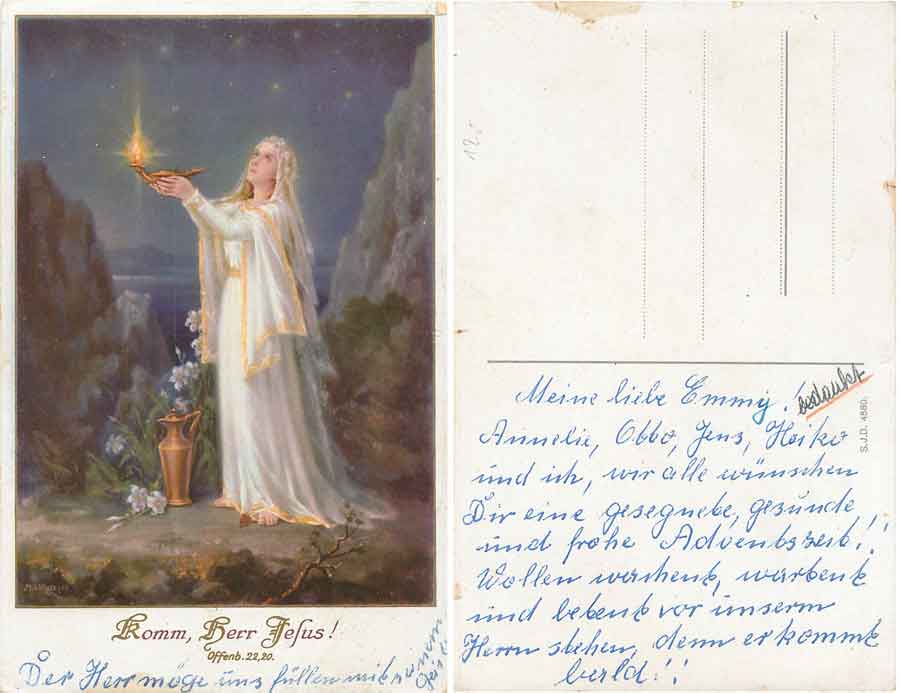 Komm, Herr Jesus!
Offenb. 22,20.
Der Herr möge uns füllen mit
12.
Meine liebe Emmy!
bedankt
Annelie, Obbo, Jens, Heiko
und ich, wir alle wünschen
Dir eine gesegnete, gesunde
und frohe Adventszeit!!
Wollen wachend, wartend
und betend vor unserm
Herrn stehen, denn er kommt
bald!!
S.J.D. 4880.